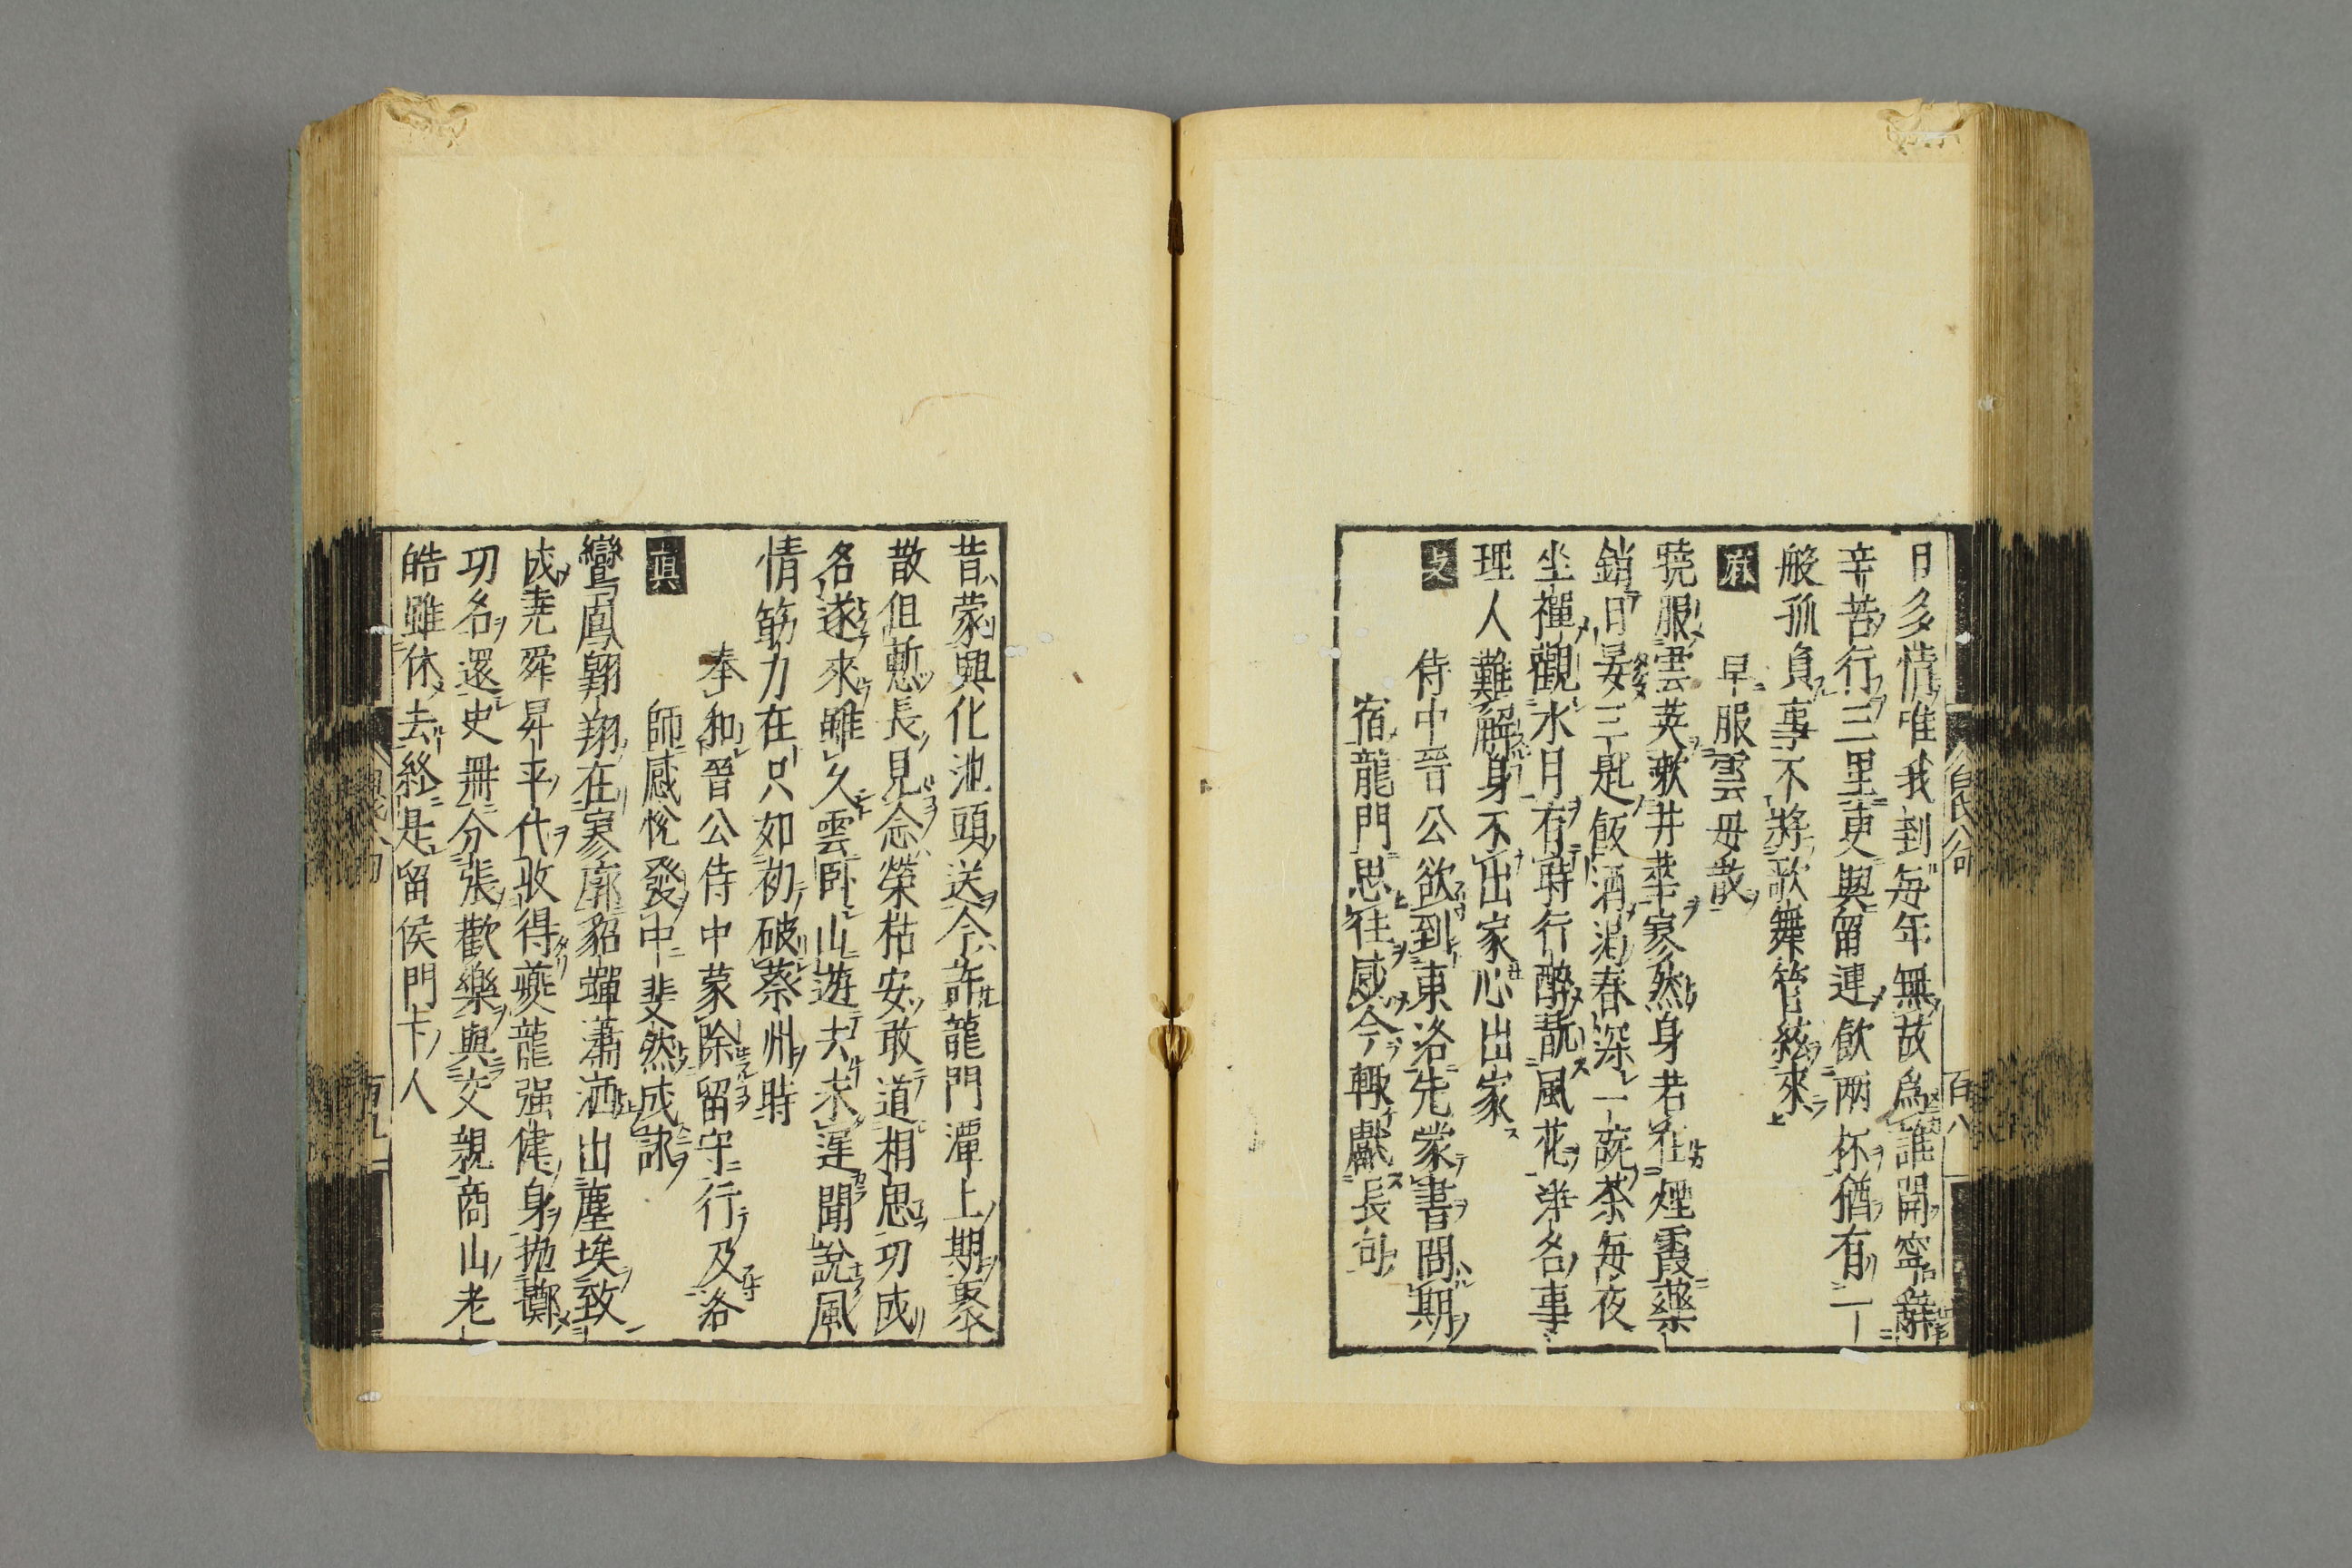 日多情唯我到毎年無故爲誰開寧辭
辛苦行三里更與留連飲兩杯猶有一
般孤負事不將歌舞管絃來
麻
早服雲母散
曉服雲英漱井華寥然身若在煙霞藥
銷日晏三匙飯酒渴春深一碗茶毎夜
坐禪觀水月有時行醉翫風花淨名事
理人難解身不出家心出家
支
侍中晉公欲到東洛先蒙書問期
宿龍門思往感今輙獻長句
昔蒙興化池頭送今許龍門潭上期聚
散但慙長見念榮枯安敢道相思功成
名遂來雖久雲卧山遊去未遲聞說風
情筋力在只如初破蔡州時
眞
奉和晉公侍中蒙除留守行及洛
師感恱發中斐然成詠
鸞鳳翱翔在寥廓貂蟬蕭洒出塵埃致
成堯舜昇平代收得夔龍强健身抛擲
功名還史冊分張歡樂與交親商山老
皓雖休去終是留侯門下人
百八